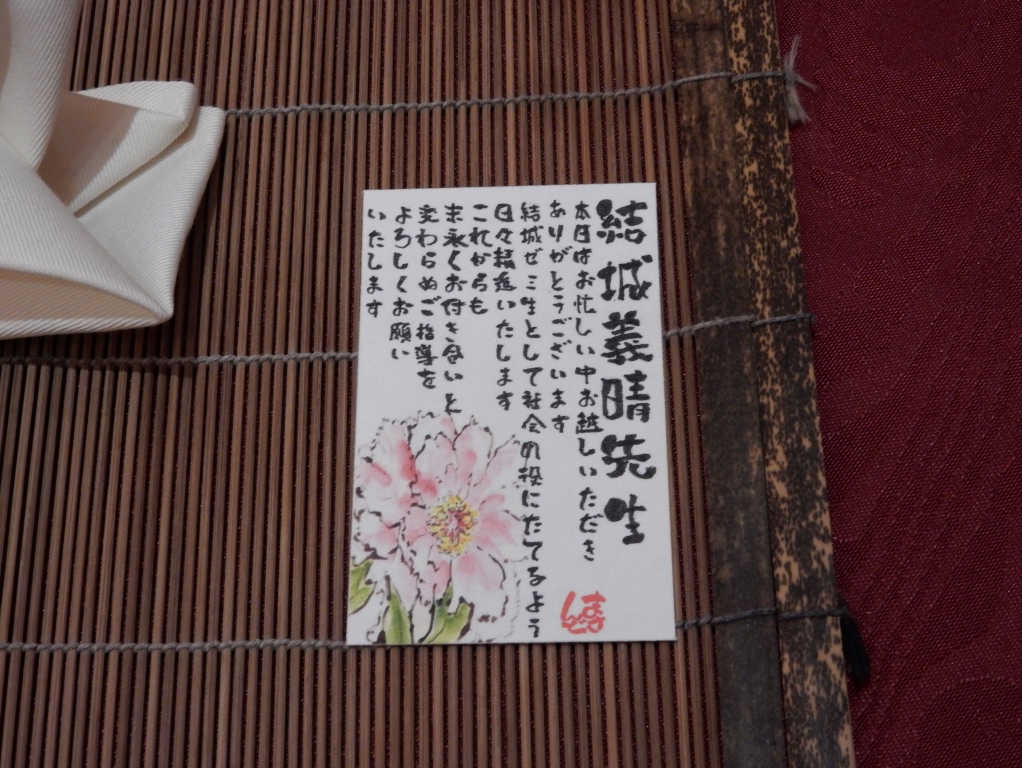 結城義晴先生
本日はお忙しい中お越しいただき
ありがとうございます
結城ゼミ生として社会の役にたてるよう
日々精進いたします
これからも
末永くお付き合いと
変わらぬご指導を
よろしくお願い
いたします